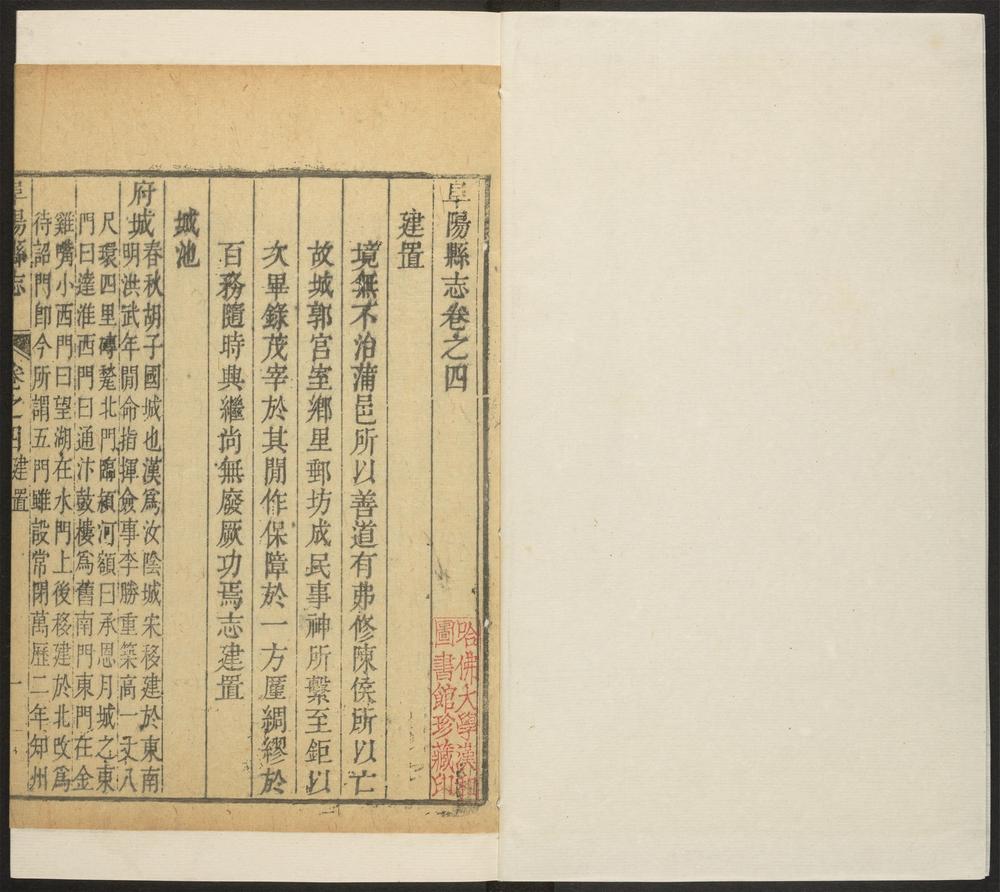 阜陽縣志卷之四
建置
境無不治蒲邑所以善道有弗修陳侯所以亡
故城郭宮室鄉里郵坊成民事神所繫至鉅以
次畢錄茂宰於其閒作保障於一方厪綢繆於
百務隨時興繼尚無廢厥功焉志建置
城池
府城春秋胡子國城也漢爲汝陰城宋移建於東南
明洪武年閒命指揮僉事李勝重築高一丈八
尺環四里磚甃北門臨潁河額曰承恩月城之東
門曰達淮西門曰通汴鼓樓爲舊南門東門在金
雞嘴小西門曰望湖在水門上後移建於北改爲
待詔門卽今所謂五門雖設常閉萬歷二年知州
阜陽縣志 卷之四 建置 一
哈佛大學漢和
圖書館珍藏印